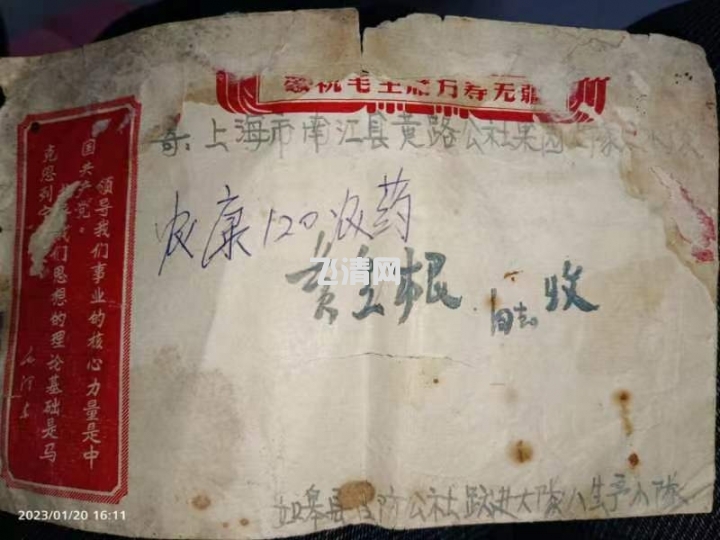 敬祝毛主席万寿无疆
寄:上海市南江县黄路公社果园
农康120农药
黄全根 同志收
领导我们事业的核心力量是中
国共产党。
我们思想的理论基础是马
克思列宁
毛泽东
飞清网
如皋县 防公社跃进大队八生产小队
2023/01/20 16:11